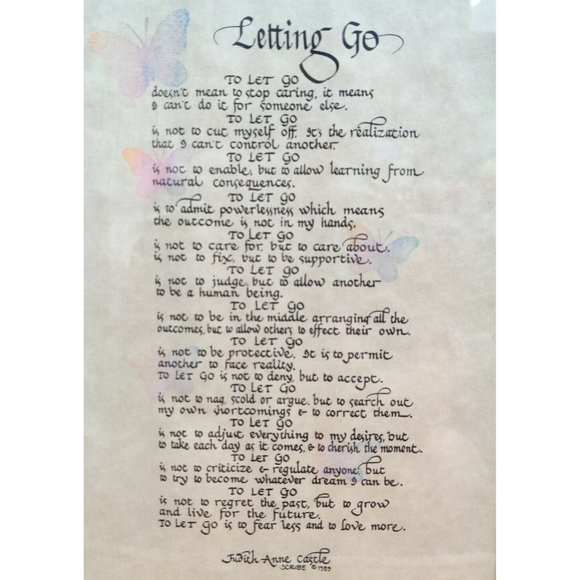 Letting Go
TO LET GO
doesn't mean to stop caring, it means
I can't do it for someone else.
TO LET GO
is not to cut myself off. It's the realization
that I can't control another.
TO LET GO
is not to enable, but to allow learning from
natural consequences.
TO LET GO
is to admit powerlessness which means
the outcome is not in my hands.
TO LET GO
is not to care for, but to care about.
is not to fix, but to be supportive.
TO LET GO
is not to judge, but to allow another
to be a human being.
TO LET GO
is not to be in the middle arranging all the
outcomes, but to allow others to effect their own.
TO LET GO
is not to be protective, It is to permit
another to face reality.
TO LET GO is not to deny, but to accept.
TO LET GO
is not to nag, scold or argue, but to search out
my own shortcomings & to correct them.
TO LET GO
is not to adjust everything to my desires, but
to take each day as it comes, & to cherish the moment.
TO LET GO
is not to criticize & regulate anyone, but
to try to become whatever dream I can be.
TO LET GO
is not to regret the past, but to grow
and live for the future.
TO LET GO is to fear less and to love more.
Judith Anne Castle
SCRIBE © 1985